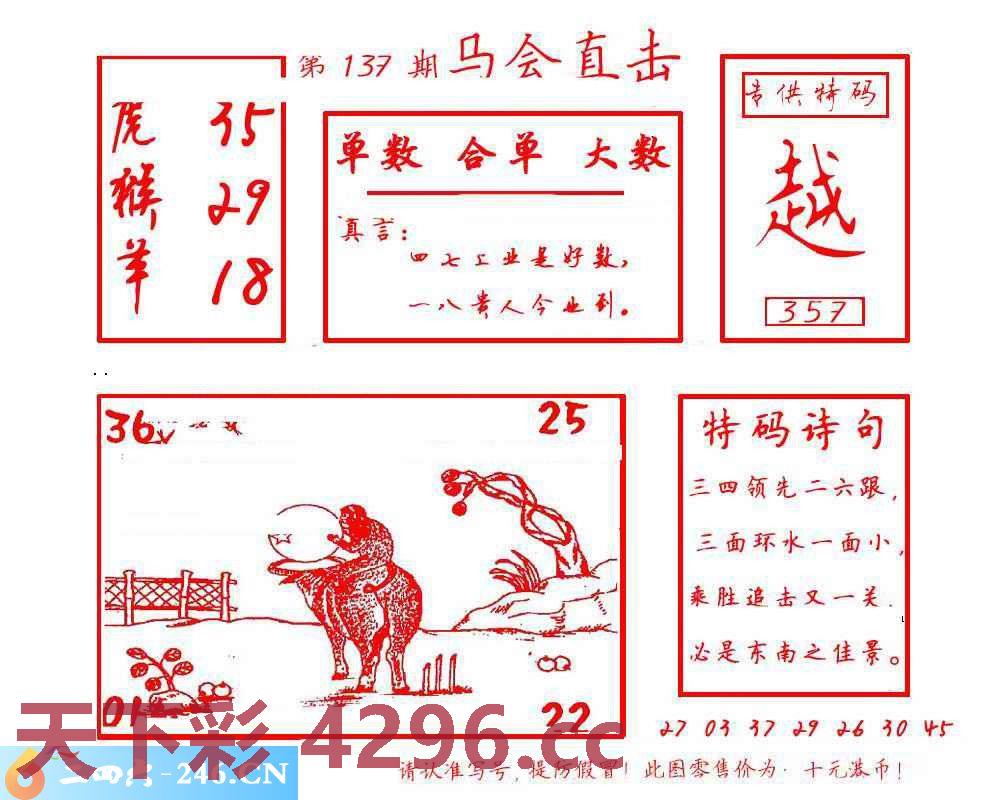 第 137 期 马会直击
虎 35
猴 29
羊 18
单数 合单 大数
真言：
四七工业是好数，
一八贵人今业到。
专供特码
越
357
36
25
01
22
特码诗句
三四领先二六跟，
三面环水一面小，
乘胜追击又一关.
必是东南之佳景。
27 03 37 29 26 30 45
天下彩 4296.cc
-246.CN
请认准写号，提防假冒！此图零售价为·十元港币！